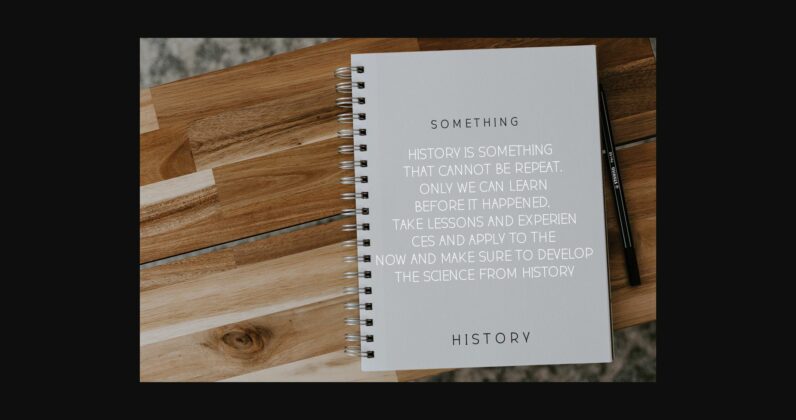 SOMETHING
HISTORY IS SOMETHING
THAT CANNOT BE REPEAT.
ONLY WE CAN LEARN
BEFORE IT HAPPENED,
TAKE LESSONS AND EXPERIEN
CES AND APPLY TO THE
NOW AND MAKE SURE TO DEVELOP
THE SCIENCE FROM HISTORY
HISTORY